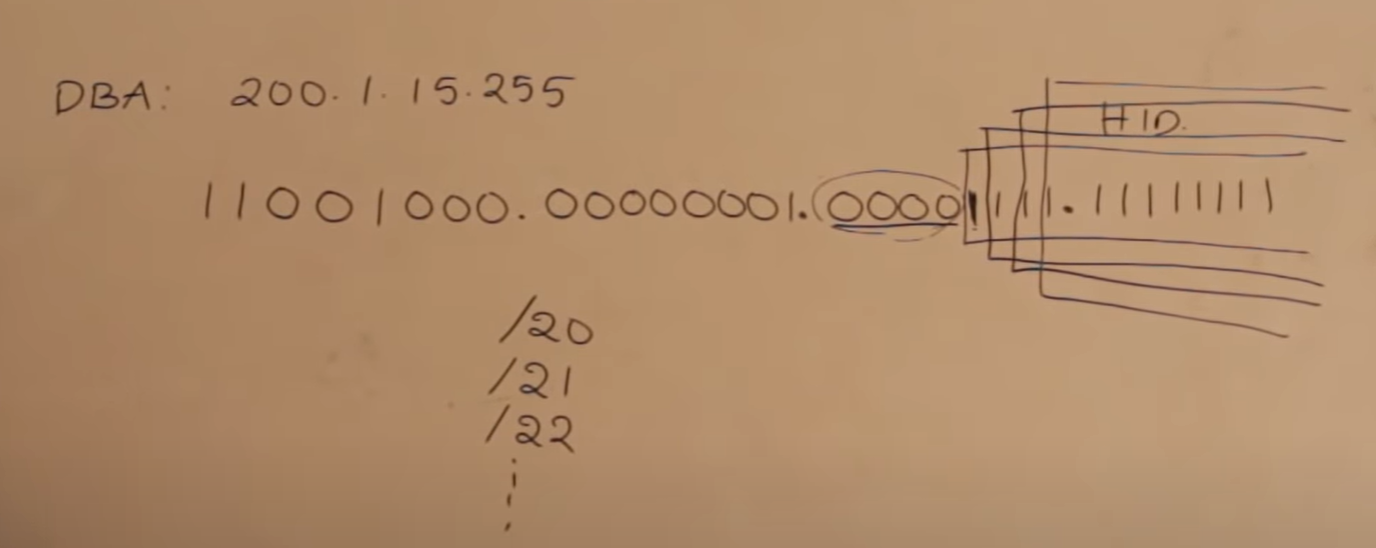 DBA: 200.1.15.255
HID.
11001000.00000001.00001111.11111111
/20
/21
/22